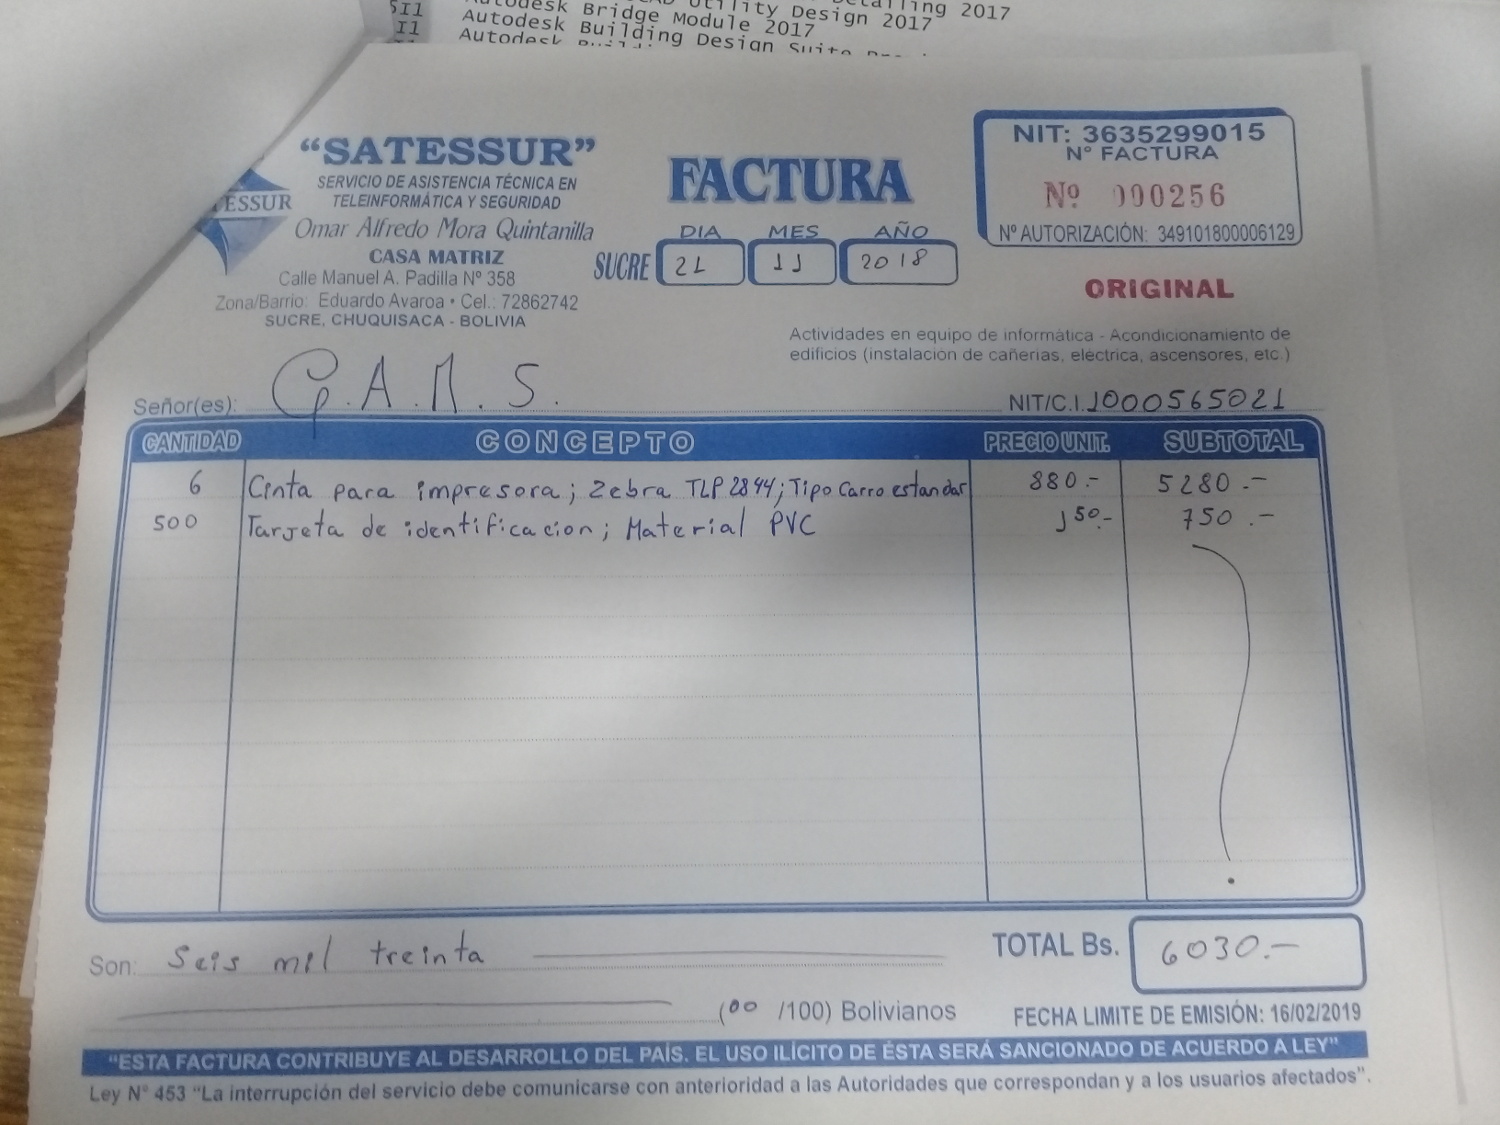 Utility Design 2017
Autodesk Bridge Module 2017
Autodesk Building Design Suite
"SATESSUR"
SERVICIO DE ASISTENCIA TÉCNICA EN
TELEINFORMÁTICA Y SEGURIDAD
Omar Alfredo Mora Quintanilla
CASA MATRIZ
Calle Manuel A. Padilla Nº 358
Zona/Barrio: Eduardo Avaroa • Cel.: 72862742
SUCRE, CHUQUISACA - BOLIVIA
FACTURA
DIA MES AÑO
SUCRE 21 11 2018
NIT: 3635299015
Nº FACTURA
Nº 000256
Nº AUTORIZACIÓN: 349101800006129
ORIGINAL
Actividades en equipo de informática - Acondicionamiento de
edificios (instalación de cañerias, eléctrica, ascensores, etc.)
Señor(es): G.A.M.S. NIT/C.I. 1000565021
CANTIDAD CONCEPTO PRECIO UNIT. SUBTOTAL
6 Cinta para impresora; Zebra TLP 2844; Tipo Carro estandar 880.- 5280.-
500 Tarjeta de identificacion; Material PVC 1 50.- 750.-
Son: Seis mil treinta TOTAL Bs. 6030.-
(00 /100) Bolivianos FECHA LIMITE DE EMISIÓN: 16/02/2019
"ESTA FACTURA CONTRIBUYE AL DESARROLLO DEL PAÍS. EL USO ILÍCITO DE ÉSTA SERÁ SANCIONADO DE ACUERDO A LEY"
Ley Nº 453 "La interrupción del servicio debe comunicarse con anterioridad a las Autoridades que correspondan y a los usuarios afectados".